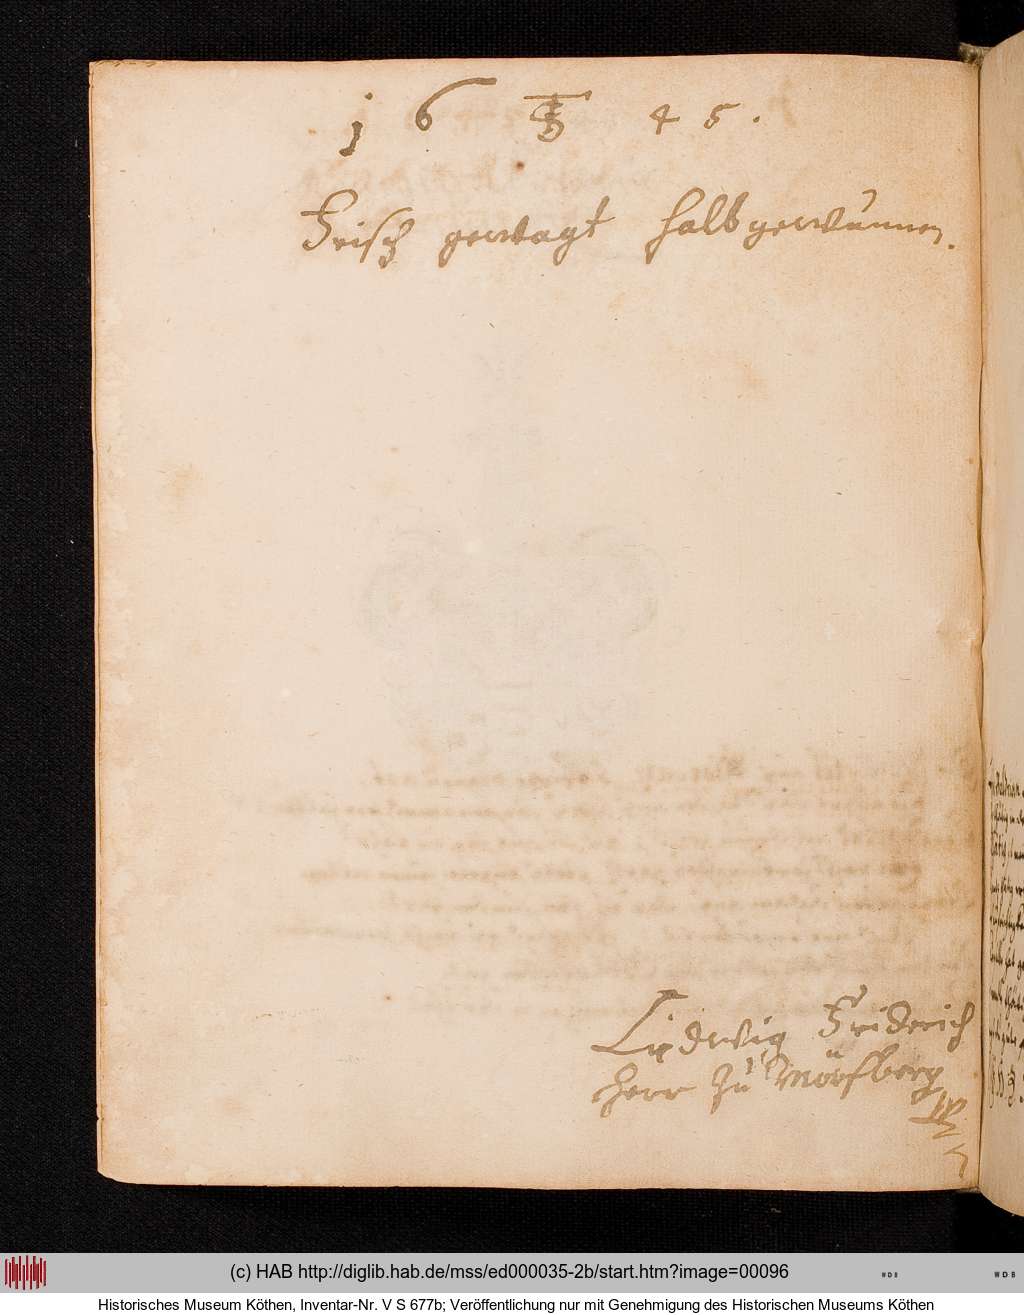 16 45.
Frisch gewagt halb gewunnen.
Ludwig Friderich
Herr zu Mörsberg
(c) HAB http://diglib.hab.de/mss/ed000035-2b/start.htm?image=00096
WDB
WDB
Historisches Museum Köthen, Inventar-Nr. V S 677b; Veröffentlichung nur mit Genehmigung des Historischen Museums Köthen